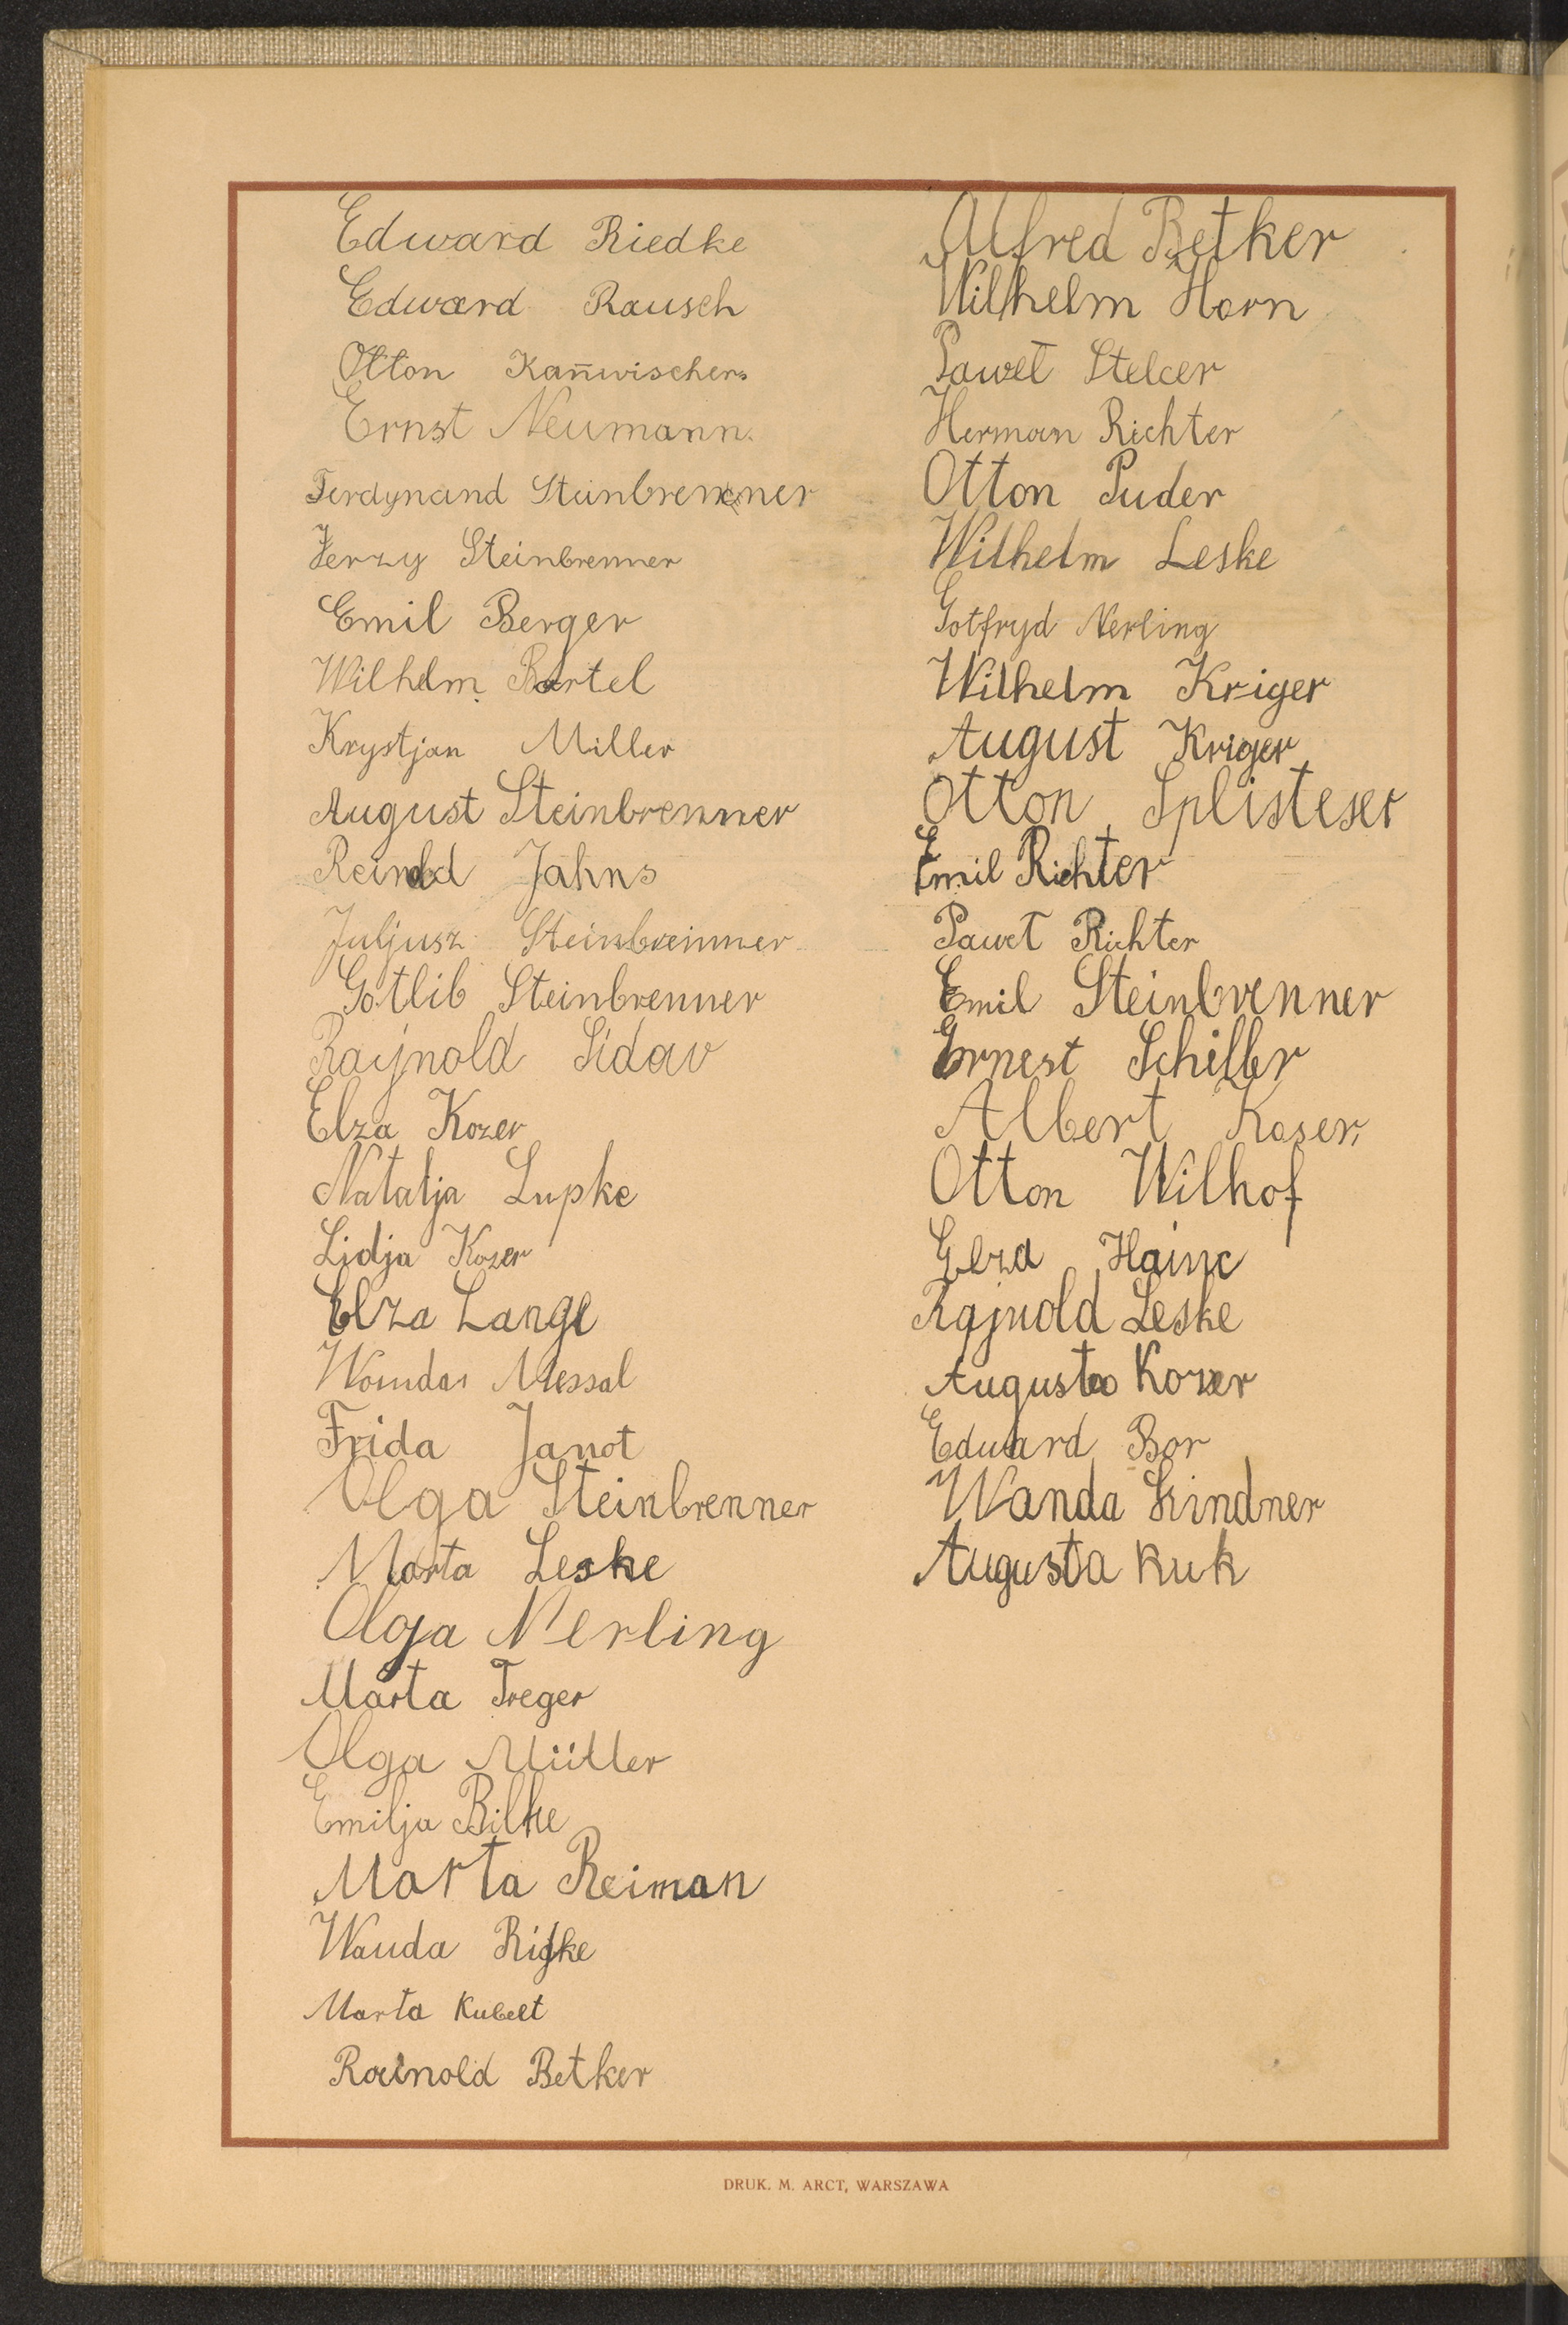 Edward Riedke
Edward Rausch
Otton Kan̄wischer
Ernst Neumann.
Ferdynand Steinbrenner
Jerzy Steinbrenner
Emil Berger
Wilhelm Bartel
Krystjan Miller
August Steinbrenner
Reinold Jahns
Juljusz Steinbreinner
Gotlib Steinbrenner
Raynold Sidav
Elza Kozer
Natalja Lupke
Lidja Kozer
Elza Lange
Wanda Messal
Frida Janot
Olga Steinbrenner
Marta Leske
Olga Nerling
Marta Treger
Olga Müller
Emilja Bilke
Marta Reiman
Wanda
Marta Kubelt
Rainold Betker
Alfred Betker
Wilhelm Horn
Paweł Stelcer
Herman Richter
Otton Puder
Wilhelm Leske
Gotfryd Nerling
Wilhelm Kriger
August Kriger
Otton Splisteser
Emil Richter
Paweł Richter
Emil Steinbrenner
Ernest Schiller
Albert Koser
Otton Wilhof
Elza Hainc
Rajnold Leske
Augusta Kozer
Eduard Bor
Wanda Lindner
Augusta Kuk
DRUK. M. ARCT, WARSZAWA